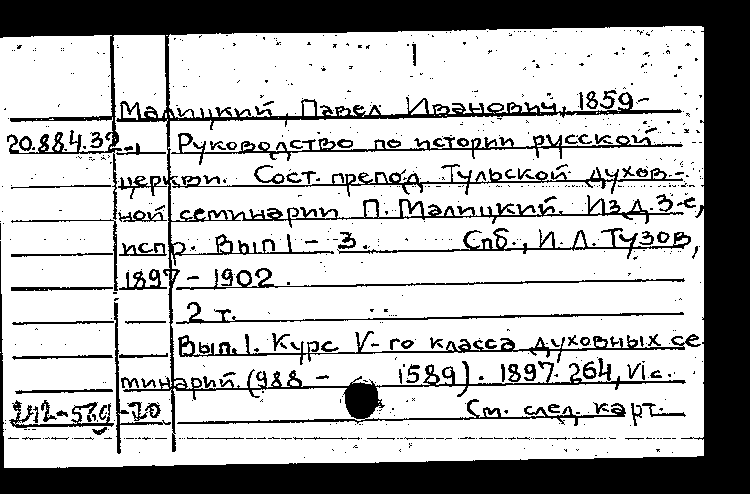 1
Малицкий, Павел Иванович, 1859-
20.88.4.32-1 Руководство по истории русской
церкви. Сост. препод. Тульской духов-
ной семинарии П. Малицкий. Изд. 3-е,
испр. Вып 1 - 3. Спб., И. Л. Тузов,
1897 - 1902.
2 т.
Вып. 1. Курс V-го класса духовных се
минарий. (988 - 1589). 1897. 264, VI с.
См. след. карт.